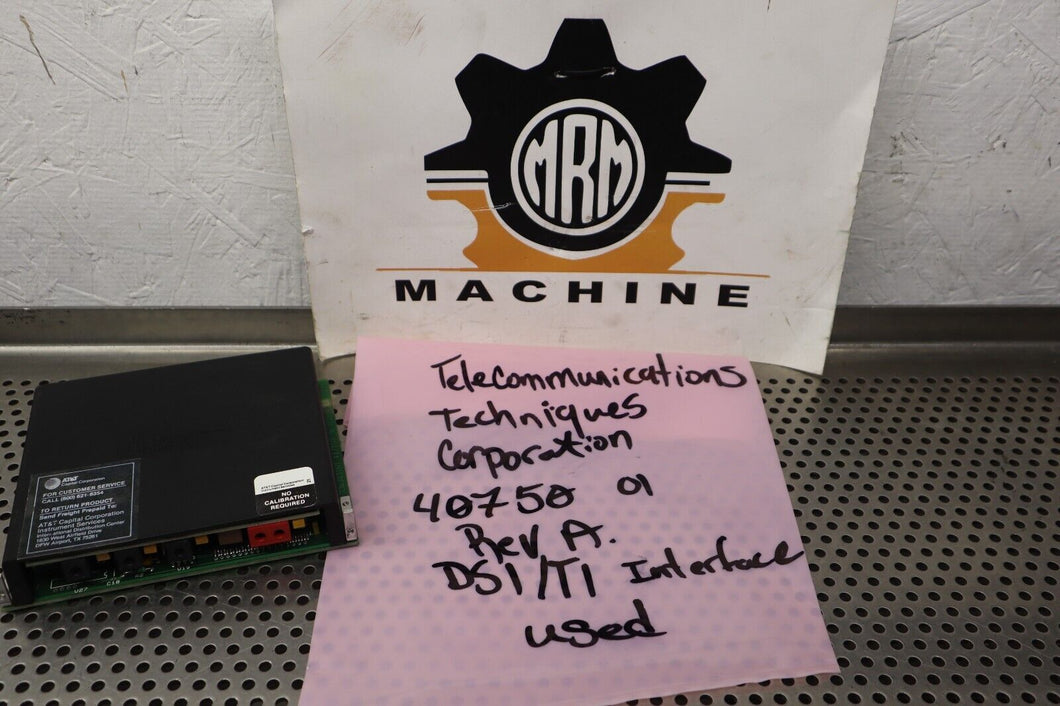 MRM
MACHINE
Telecommunications
Techniques
Corporation
40750 01
Rev A.
DS1/T1 Interface
used
AT&T
Capital Corporation
FOR CUSTOMER SERVICE
CALL (800) 621-8354
TO RETURN PRODUCT
Send Freight Prepaid To:
AT&T Capital Corporation
Instrument Services
International Distribution Center
1830 West Airfield Drive
DFW Airport, TX 75261
NO
CALIBRATION
REQUIRED
C18
U27